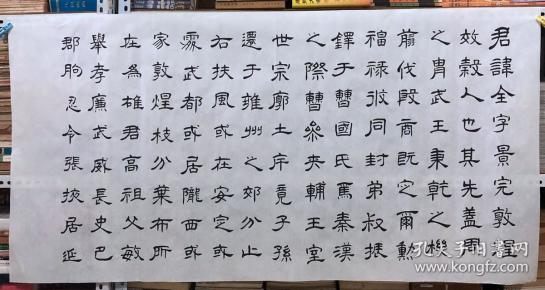 君諱全字景完敦煌
效穀人也其先蓋周
之胄武王秉乾之機
翦伐殷商既定爾勳
福禄攸同封弟叔振
鐸于曹國氏焉秦漢
之際曹參夾輔王室
世宗廓土斥竟子孫
遷于雍州之郊分止
右扶風或在安定或
處武都或居隴西或
家敦煌枝分葉布所
在為雄君高祖父敏
舉孝廉武威長史巴
郡朐忍令張掖居延
孔夫子旧书网
www.kongfz.com